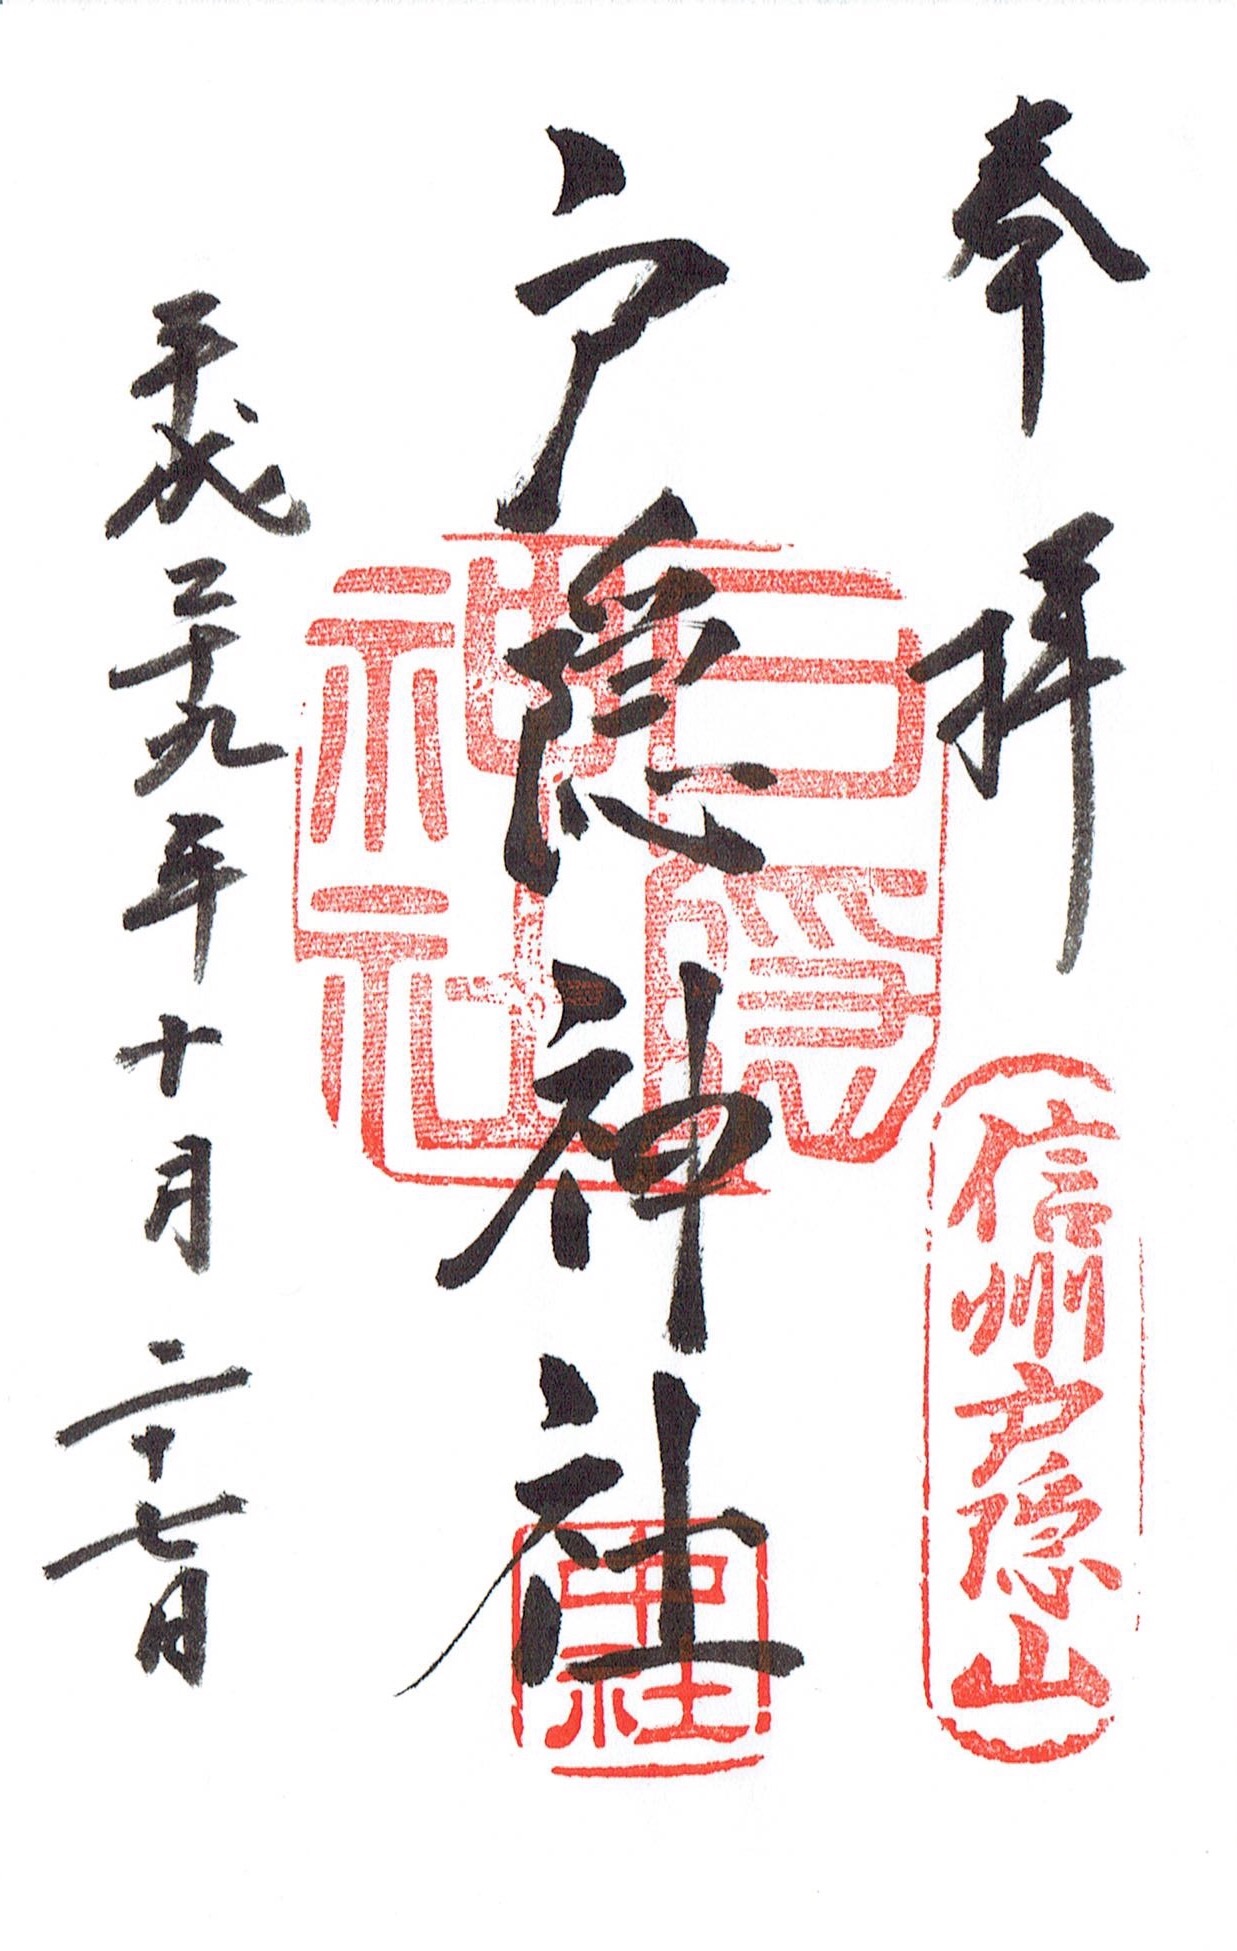 奉拝
信州戸隠山
戸隠神社
戸隠神社
中社
平成二十九年十月二十七日